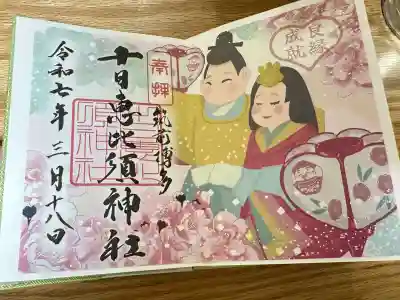 良縁
成就
奉拝
筑前博多
十日恵比須神社
令和七年三月十八日